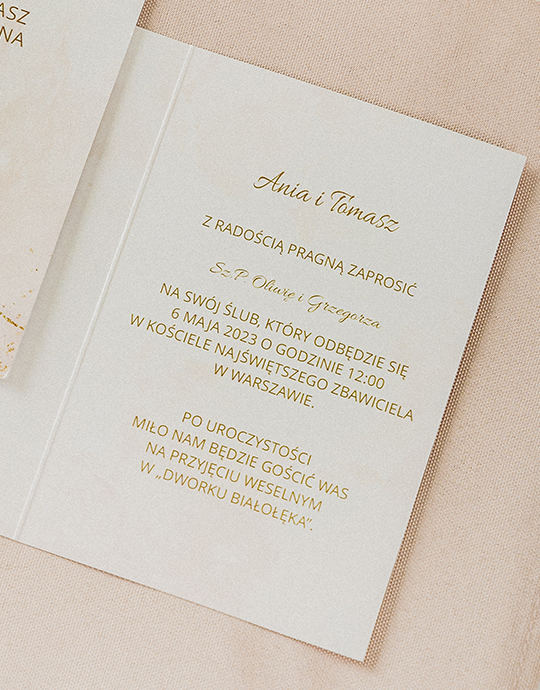 ASZ
NA
Ania i Tomasz
Z RADOŚCIĄ PRAGNĄ ZAPROSIĆ
Sz.P. Oliwię i Grzegorza
NA SWÓJ ŚLUB, KTÓRY ODBĘDZIE SIĘ
6 MAJA 2023 O GODZINIE 12:00
W KOŚCIELE NAJŚWIĘTSZEGO ZBAWICIELA
W WARSZAWIE.
PO UROCZYSTOŚCI
MIŁO NAM BĘDZIE GOŚCIĆ WAS
NA PRZYJĘCIU WESELNYM
W „DWORKU BIAŁOŁĘKA”.